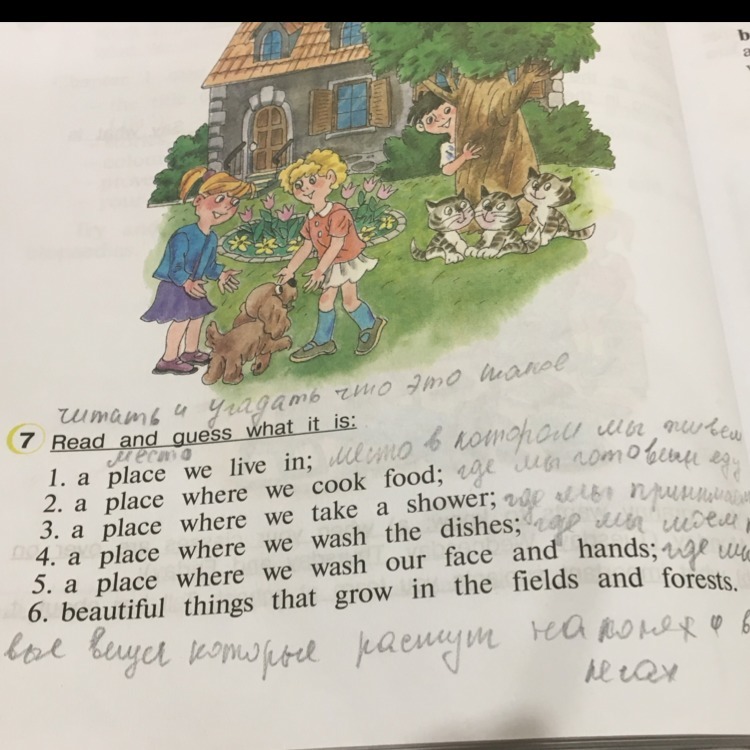 b
a
читать и угадать что это такое
7 Read and guess what it is:
место
1. a place we live in; место в котором мы живем
2. a place where we cook food; где мы готовим еду
3. a place where we take a shower; где мы принимаем
4. a place where we wash the dishes; где мы моем
5. a place where we wash our face and hands; где
6. beautiful things that grow in the fields and forests.
вые вещи которые растут на полях и в
лесах